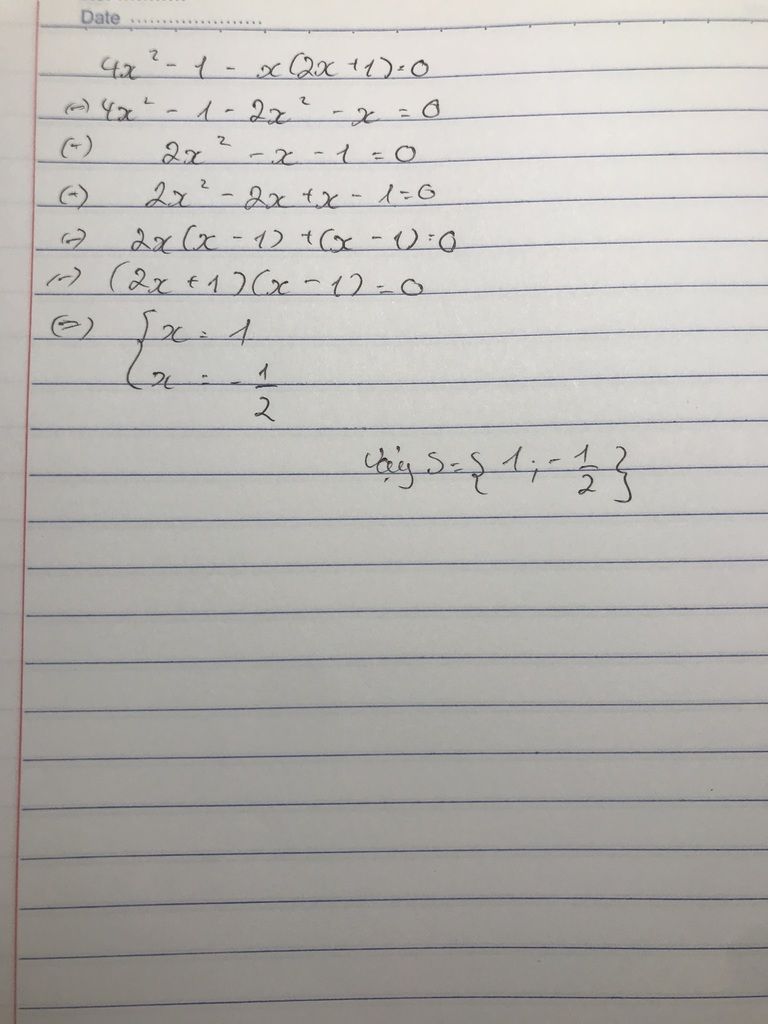 Date ......................
4x² - 1 - x(2x+1)=0
⇔ 4x² - 1 - 2x² - x = 0
⇔ 2x² - x - 1 = 0
⇔ 2x² - 2x + x - 1 = 0
⇔ 2x(x - 1) + (x - 1) = 0
⇔ (2x + 1)(x - 1) = 0
⇔ { x = 1
{ x = -1/2
Vậy S = { 1 ; -1/2 }